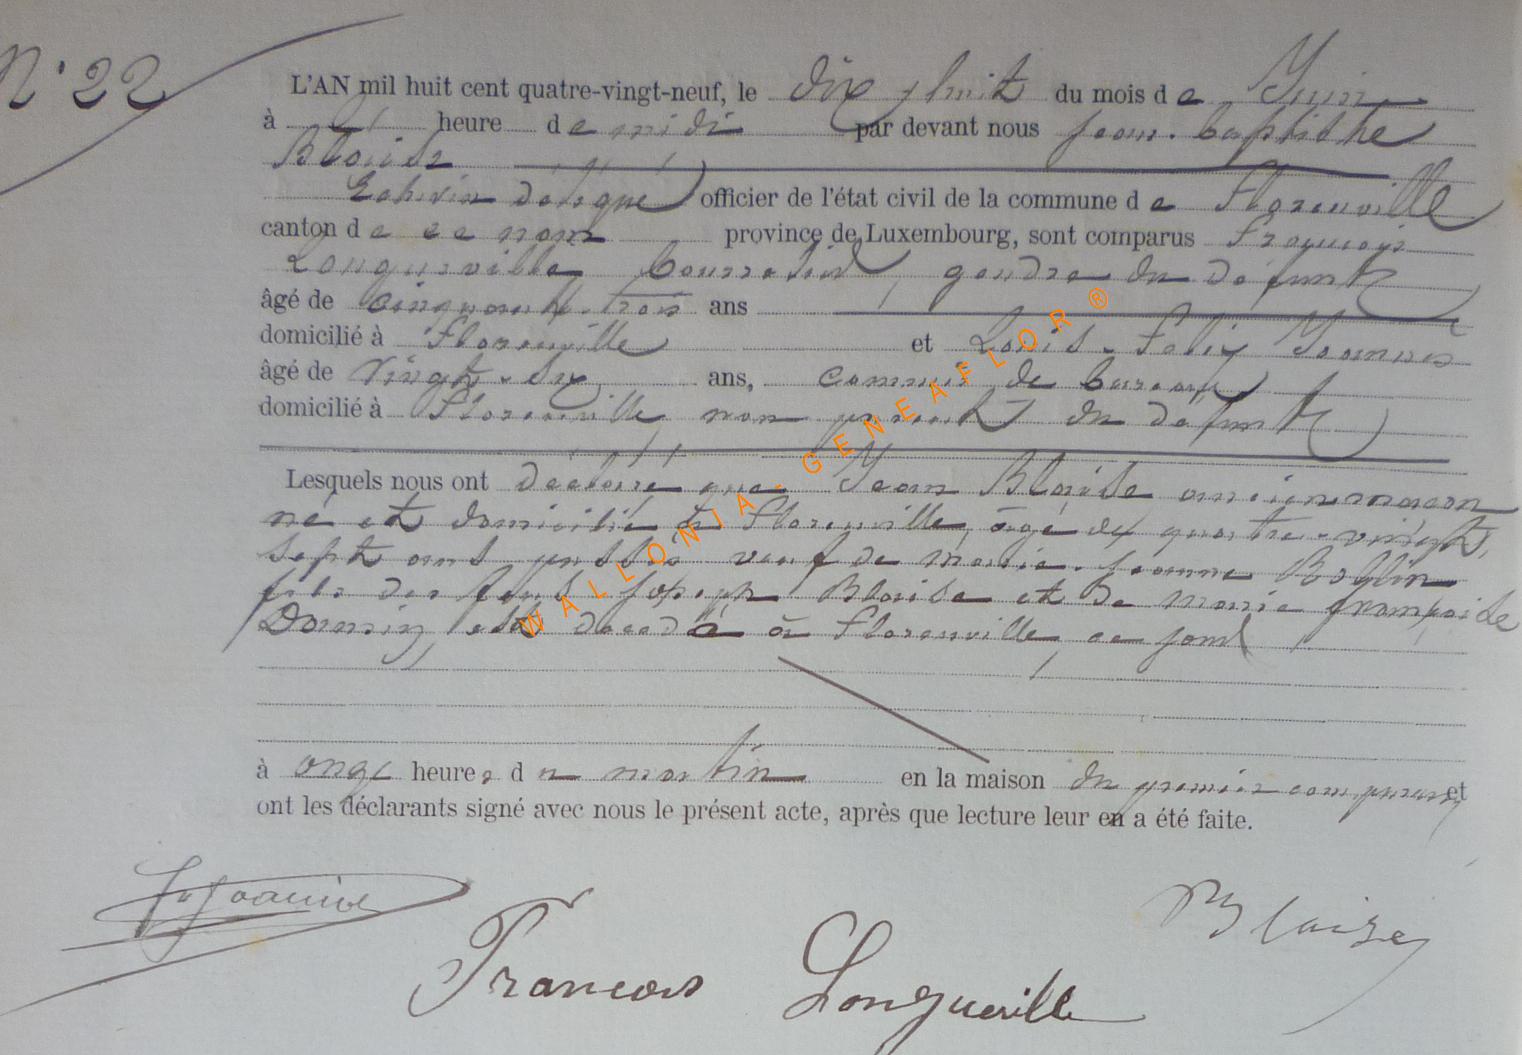 N° 22
L'AN mil huit cent quatre-vingt-neuf, le dix huit du mois de Juin
à heure de midi par devant nous Jean-Baptisthe
Blaise
Echevin délégué officier de l'état civil de la commune de Florenville
canton de ce nom province de Luxembourg, sont comparus François
Longueville gendre du défunt
âgé de cinquante-trois ans
domicilié à Florenville et Louis-Felix
âgé de Vingt-six ans, commis de bureau
domicilié à Florenville, non parent du défunt
Lesquels nous ont déclaré que Jean Blaise ancien maçon
né et domicilié à Florenville, âgé de quatre-vingt,
sept ans veuf de Marie-Jeanne
fils des feus Joseph Blaise et de Marie françoise
est décédé à Florenville, ce jour
à onze heures du matin en la maison du premier comparant et
ont les déclarants signé avec nous le présent acte, après que lecture leur en a été faite.
Blaise
François Longueville
WALLONIA-GENEAFLOR®